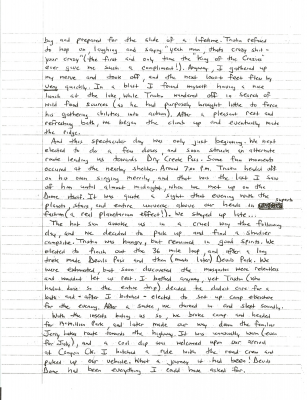 big and prepared for the slide of a lifetime. Tratu refused
to hop on, laughing and saying "yeah man, that's crazy shit -
you're crazy" (the first and only time the King of the Crazies
ever gave me such a compliment!). Anyway, I gathered up
my nerve and took off, and the next loud feet flew by
way quickly. In a blast I found myself having a nice
lunch at the lake, while Tratu wandered off in search of
wild food sources (as he had purposely brought little to force
his gathering abilities into action). After a pleasant rest and
refreshing bath, we began the climb up and eventually made
the ridge.
And this spectacular day was only just beginning. We next
elected to do a few dives and soon struck an alternate
route leading us towards Dry Creek Pass. Some fun moments
occurred at the nearby shelter. Around 7:00 pm. Tratu headed off
on his own singing merrily, and that was the last I saw
of him until almost midnight, when we met up on the
Dome itself. It was quite a sight that evening with the
planets, stars and entire universe above our heads in superb
fashion (a real planetarium effect!). We stayed up late...
The hot sun awoke us in a cruel way the following
day, and we decided to pack up and find a shadier
campsite. Tratu was hungry, but remained in good spirits. We
elected to finish out the 36 mile loop and after a long
trek made Devils Pass and then (much later) Devils Park. We
were exhausted but soon discovered the mosquitos were relentless
and wanted to eat us. I bugged anyway, yet Tratu (who
hadn't done so the entire trip) decided he didn't care for a
bath and - after I bitched - elected to set up camp elsewhere
for the evening. After a snack we turned in and slept soundly.
With the insects biting us so, we broke camp and headed
for McMillan Park and later made our way down the familiar
Jerry Lakes route towards the highway. It was unusually warm (even
for July), and a cool dip was welcomed upon our arrival
at Canyon Ck. I hitched a ride with the road crew and
picked up our vehicle. What a journey it had been! Devils
Dome had been everything I could have asked for.